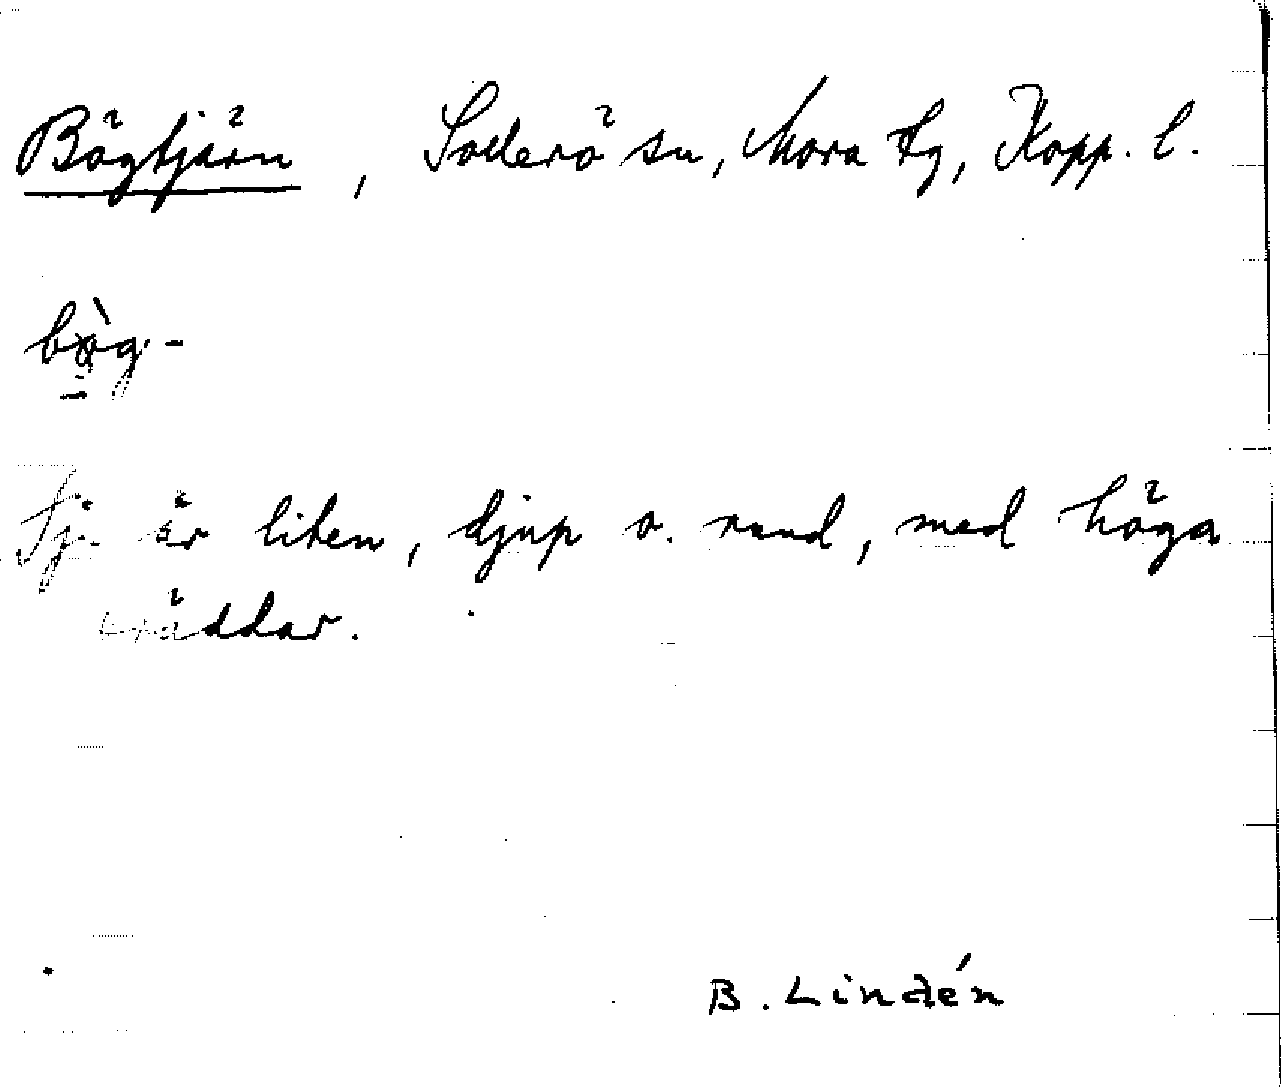 Bögtjärn, Soderö sn, Mora tg, Kopp. l.
bòg-
Tj. är liten, djup o. rund, med höga
bräddar.
B. Lindén